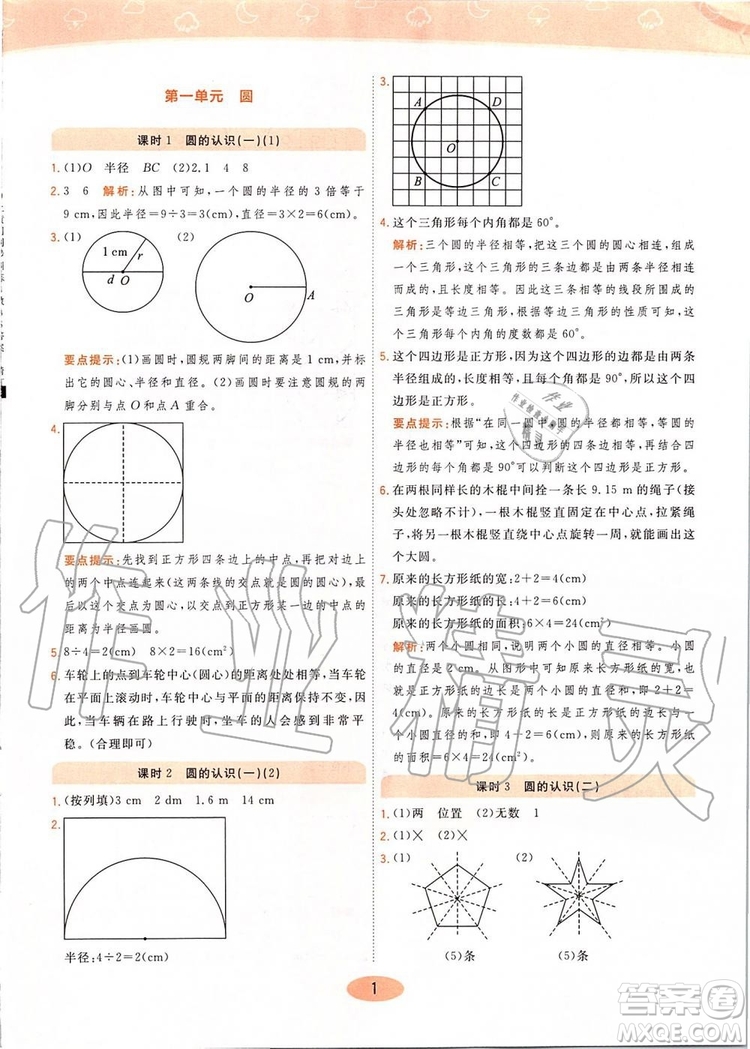 第一单元 圆
课时1 圆的认识(一)(1)
1. (1)O 半径 BC (2)2.1 4 8
2. 3 6 解析:从图中可知,一个圆的半径的3倍等于
9 cm,因此半径=9÷3=3(cm),直径=3×2=6(cm)。
3. (1) (2)
1 cm
r
d O
O
A
要点提示:(1)画圆时,圆规两脚间的距离是1 cm,并标
出它的圆心、半径和直径。(2)画圆时要注意圆规的两
脚分别与点O和点A重合。
4.
要点提示:先找到正方形四条边上的中点,再把相对
的两个中点连起来(这两条线的交点就是圆心),最后
以两条线的交点为圆心,以圆心到正方形边上的中点
的距离为半径画圆。
5. 8÷4=2(cm) 8×2=16(cm)
6. 车轮上的点到车轮中心(圆心)的距离处处相等,当车轮
在平面上滚动时,车轮中心与平面的距离保持不变,因
此,当车辆在路上行驶时,坐车的人会感到非常平
稳。(合理即可)
课时2 圆的认识(一)(2)
1. (按列填)3 cm 2 dm 1.6 m 14 cm
2.
半径:4÷2=2(cm)
3.
A
D
O
B
C
4. 这个三角形每个内角都是60°。
解析:三个圆的半径相等,把这三个圆的圆心相连,组成
一个三角形,这个三角形的三条边都是由两条半径组
成的,长度相等。因为由三条长度相等的线段所围成的
三角形是等边三角形,根据等边三角形的性质可知,这
个三角形每个内角的度数都是60°。
5. 这个四边形是正方形,因为这个四边形的边都是由两条
半径组成的,长度相等,且每个角都是90°,所以这个四
边形是正方形。
要点提示:根据“在同一圆中圆的所有直径都相等,圆的
半径也相等”可知,这个四边形的四条边相等,根据四边
形的每个角都是90°可以判断这个四边形是正方形。
6. 在两根同样长的木棍中间拴一条长9.15 m的绳子(接
头处忽略不计),将一根木棍竖直固定在中心点,拉紧绳
子,将另一根木棍竖直绕中心点旋转一周,就能画出这
个大圆。
7. 原来的长方形纸的宽:2+2=4(cm)
原来的长方形纸的长:2+2+2=6(cm)
原来的长方形纸的面积:6×4=24(cm²)
解析:两个小圆相同,说明两个小圆的直径相等。小圆
的直径是2 cm,从图中可知,大圆的直径是2+2=
4(cm)。原来的长方形纸的长是正方形纸的边长与一
个小圆直径的和,即4+2=6(cm),所以原来的长方形
纸的面积=6×4=24(cm²)。
课时3 圆的认识(二)
1. (1)两 位置 (2)无数 1
2. (1)× (2)×
3. (1) (2)
(5)条 (5)条
1
作业精灵
答案圈
MXQE.COM